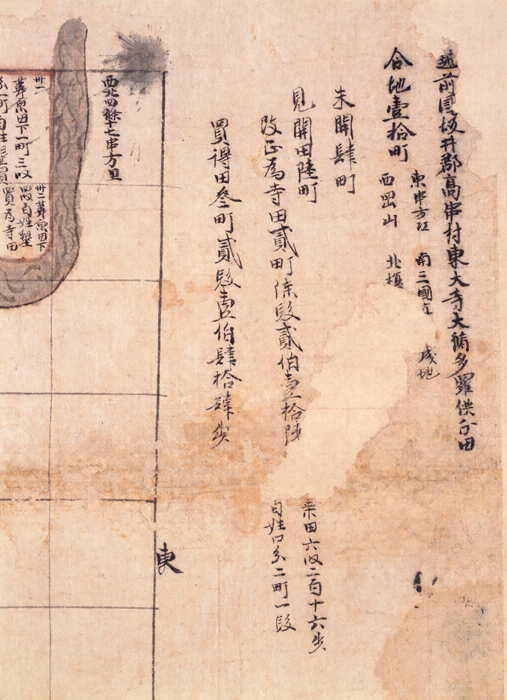 越前國坂井郡高串村東大寺大脩多羅供分田
合地壹拾町
東串方江　南三國
西岡山　北榎
未開肆町
見開田陸町
改正為寺田貳町陸段貳伯壹拾陸
買得田叁町貳段壹伯肆拾肆步
乗田六段二百十六步
百姓口分二町一段
西北四條七串方里
卅一葦原田下一町三以
卅二葦原田下
四段百姓墾
買為寺田
東